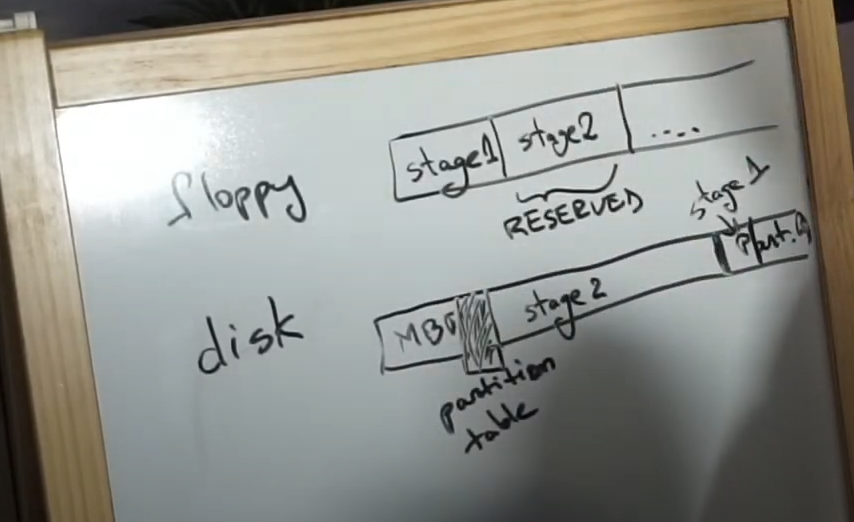 floppy
stage1
stage2
....
RESERVED
stage1
disk
stage2
partition
table